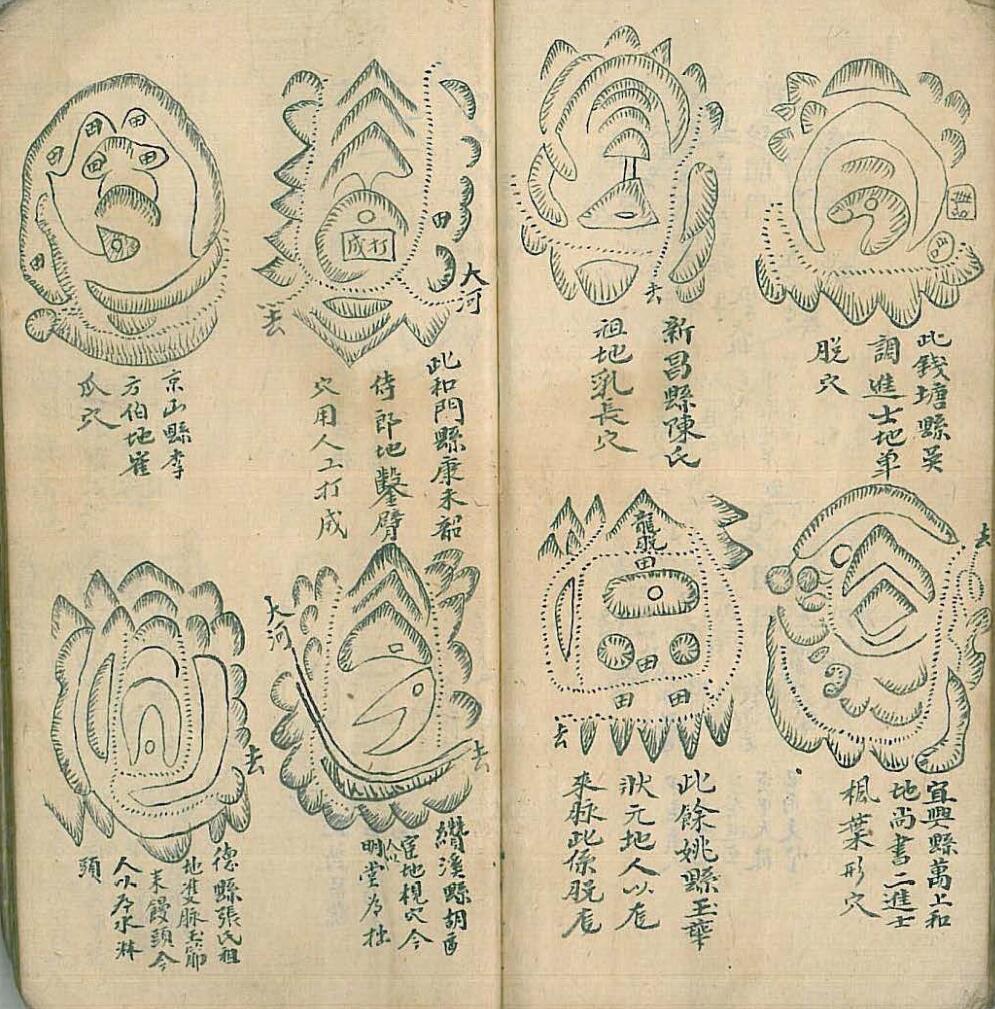 此錢塘縣吴
調進士地单
脫穴
新昌縣陳氏
祖地乳長穴
去
宜興縣萬上和
地尚書二進士
楓葉形穴
去
龍脫
田
田
田
田
去
此餘姚縣王華
狀元地人以為
來脉此係脫龙
打成
田
大河
去
此和門縣康未韶
侍郎地鑿臂
穴用人工打成
田
田
田
田
田
田
京山縣李
方伯地雀
爪穴
大河
去
績溪縣胡
宦地梘穴今
人以
明堂为拙
去
德縣張氏祖
地雙脉玉節
末饅頭今
人以为水淋
頭